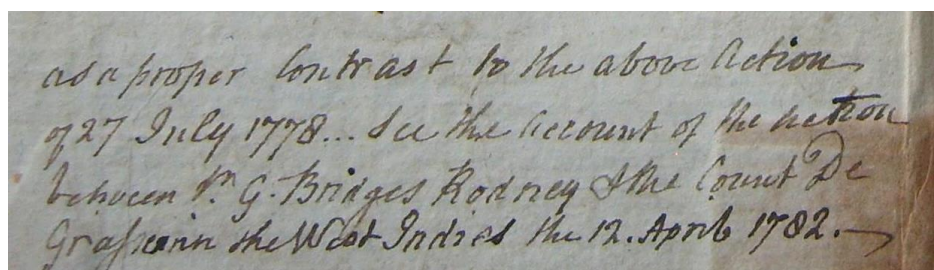 as a proper Contrast to the above Action
of 27 July 1778... See the Account of the Action
between Sr. G. Bridges Rodney & the Count De
Grasse in the West Indies the 12. April 1782.—